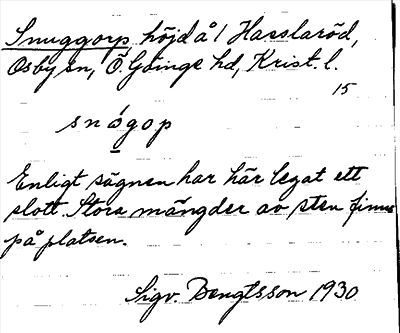 Snuggorp höjd å 1 Hasslaröd,
Osby sn, Ö. Göinge hd, Krist. l.
15
snógop
Enligt sägnen har här legat ett
slott. Stora mängder av sten finns
på platsen.
Sigv. Bengtsson 1930